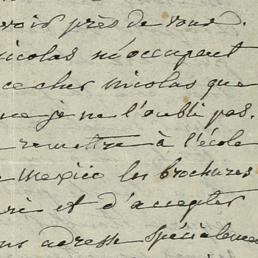 voir près de vous.
nicolas m'occupent
ce cher nicolas que
ne je ne l'oubli pas.
remettre à l'école
Mexico les brochures
et d'accepter
adresse spécialemen